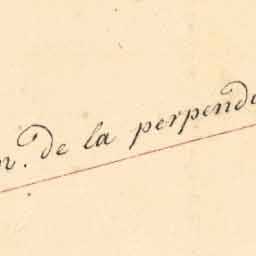 n. de la perpend